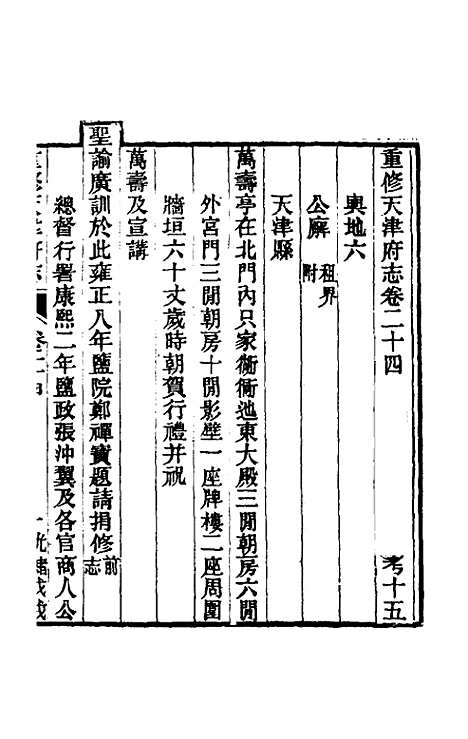 重修天津府志卷二十四 考十五
輿地六
公廨 租界附
天津縣
萬壽亭在北門內只家衚衕池東大殿三閒朝房六閒
外宮門三閒朝房十閒影壁一座牌樓二座周圍
牆垣六十丈歲時朝賀行禮并祝
萬壽及宣講
聖諭廣訓於此雍正八年鹽院鄭禪寶題請捐修前志
總督行署康熙二年鹽政張沖翼及各官商人公